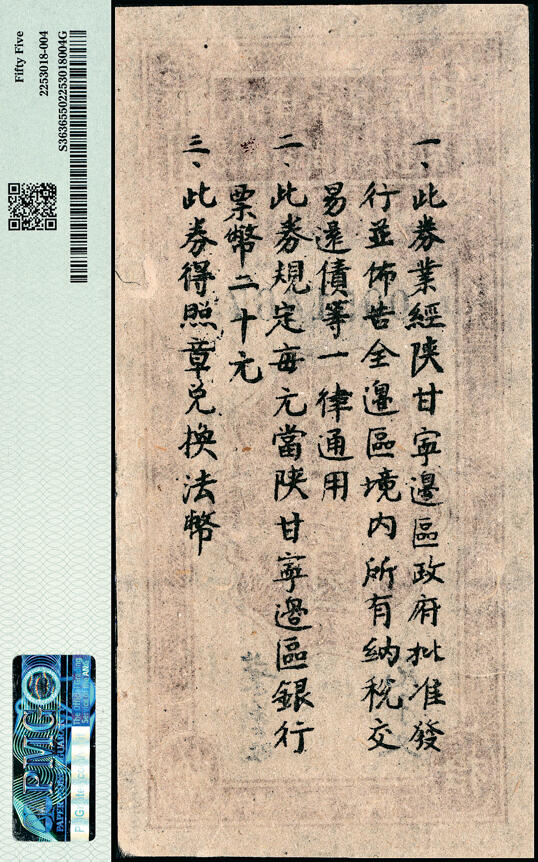 Fifty Five
2253018-004
S3636550225301​8004G
一、此券業經陝甘寧邊區政府批准發
行並佈告全邊區境内所有納稅交
易還債等一律通用
二、此券規定每元當陝甘寧邊區銀行
票幣二十元
三、此券得照章兌换法幣
PMG